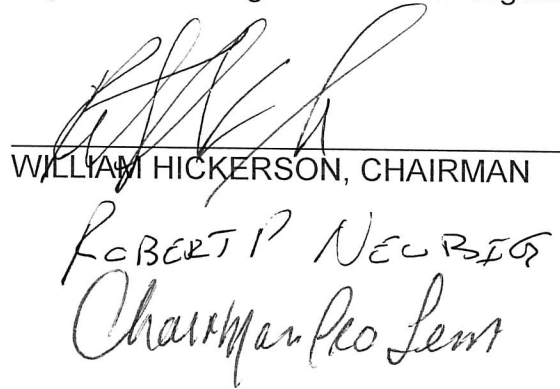 WILLIAM HICKERSON, CHAIRMAN
ROBERT P NEUBIG
Chairman Pro Tem